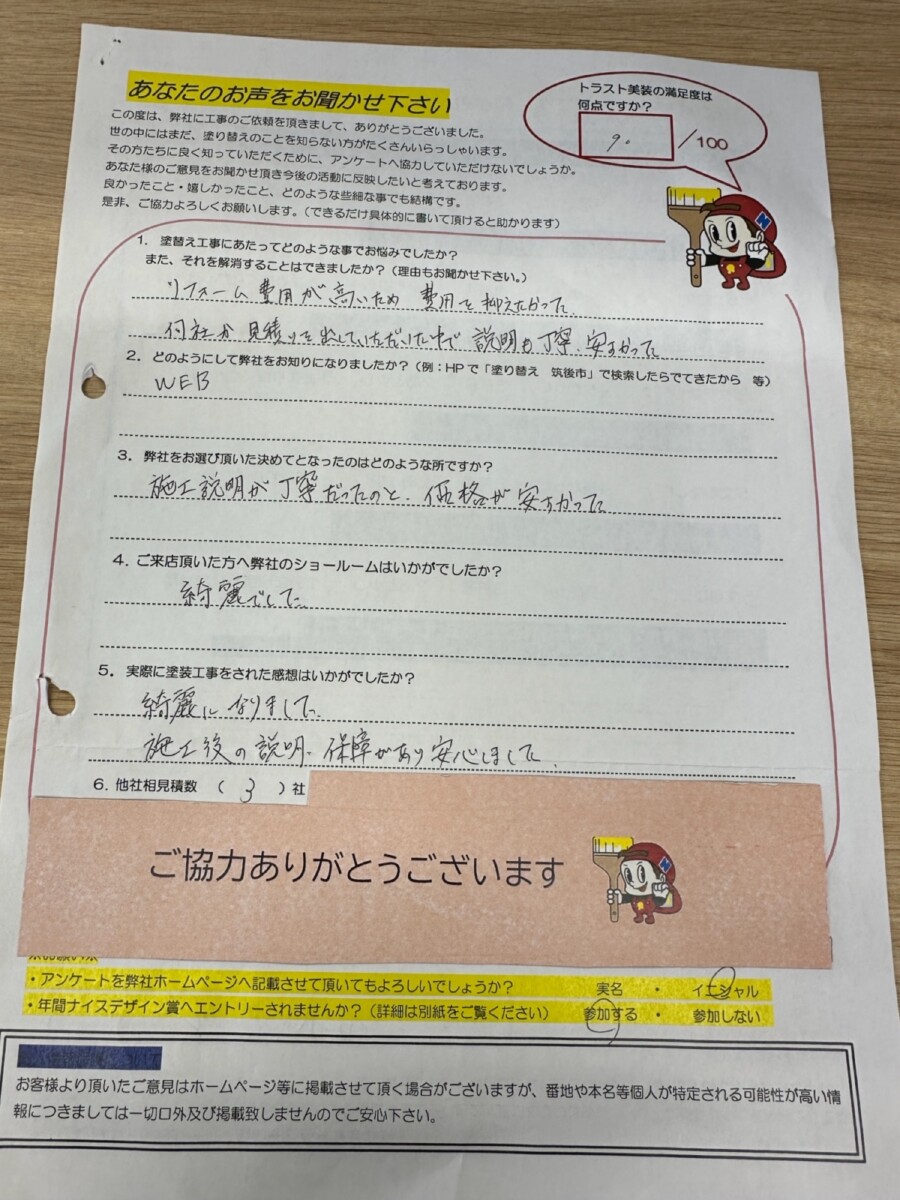 あなたのお声をお聞かせ下さい
トラスト美装の満足度は
何点ですか？
9. /100
この度は、弊社に工事のご依頼を頂きまして、ありがとうございました。
世の中にはまだ、塗り替えのことを知らない方がたくさんいらっしゃいます。
その方たちに良く知っていただくために、アンケートへ協力していただけないでしょうか。
あなた様のご意見をお聞かせ頂き今後の活動に反映したいと考えております。
良かったこと・嬉しかったこと、どのような些細な事でも結構です。
是非、ご協力よろしくお願いします。（できるだけ具体的に書いて頂けると助かります）
1. 塗替え工事にあたってどのような事でお悩みでしたか？
また、それを解消することはできましたか？（理由もお聞かせ下さい。）
リフォーム費用が高いため 費用を抑えたかった
何社か見積りを出していただいた中で 説明も丁寧、安すかった
2. どのようにして弊社をお知りになりましたか？（例：HPで「塗り替え 筑後市」で検索したらでてきたから 等）
WEB
3. 弊社をお選び頂いた決めてとなったのはどのような所ですか？
施工説明が丁寧だったのと、価格が安すかった
4. ご来店頂いた方へ弊社のショールームはいかがでしたか？
綺麗でした
5. 実際に塗装工事をされた感想はいかがでしたか？
綺麗になりました
施工後の説明、保障があり安心しました
6. 他社相見積数 （ 3 ）社
ご協力ありがとうございます
・アンケートを弊社ホームページへ記載させて頂いてもよろしいでしょうか？ 実名 ・ イニシャル
・年間ナイスデザイン賞へエントリーされませんか？（詳細は別紙をご覧ください） 参加する ・ 参加しない
お客様より頂いたご意見はホームページ等に掲載させて頂く場合がございますが、番地や本名等個人が特定される可能性が高い情
報につきましては一切口外及び掲載致しませんのでご安心下さい。